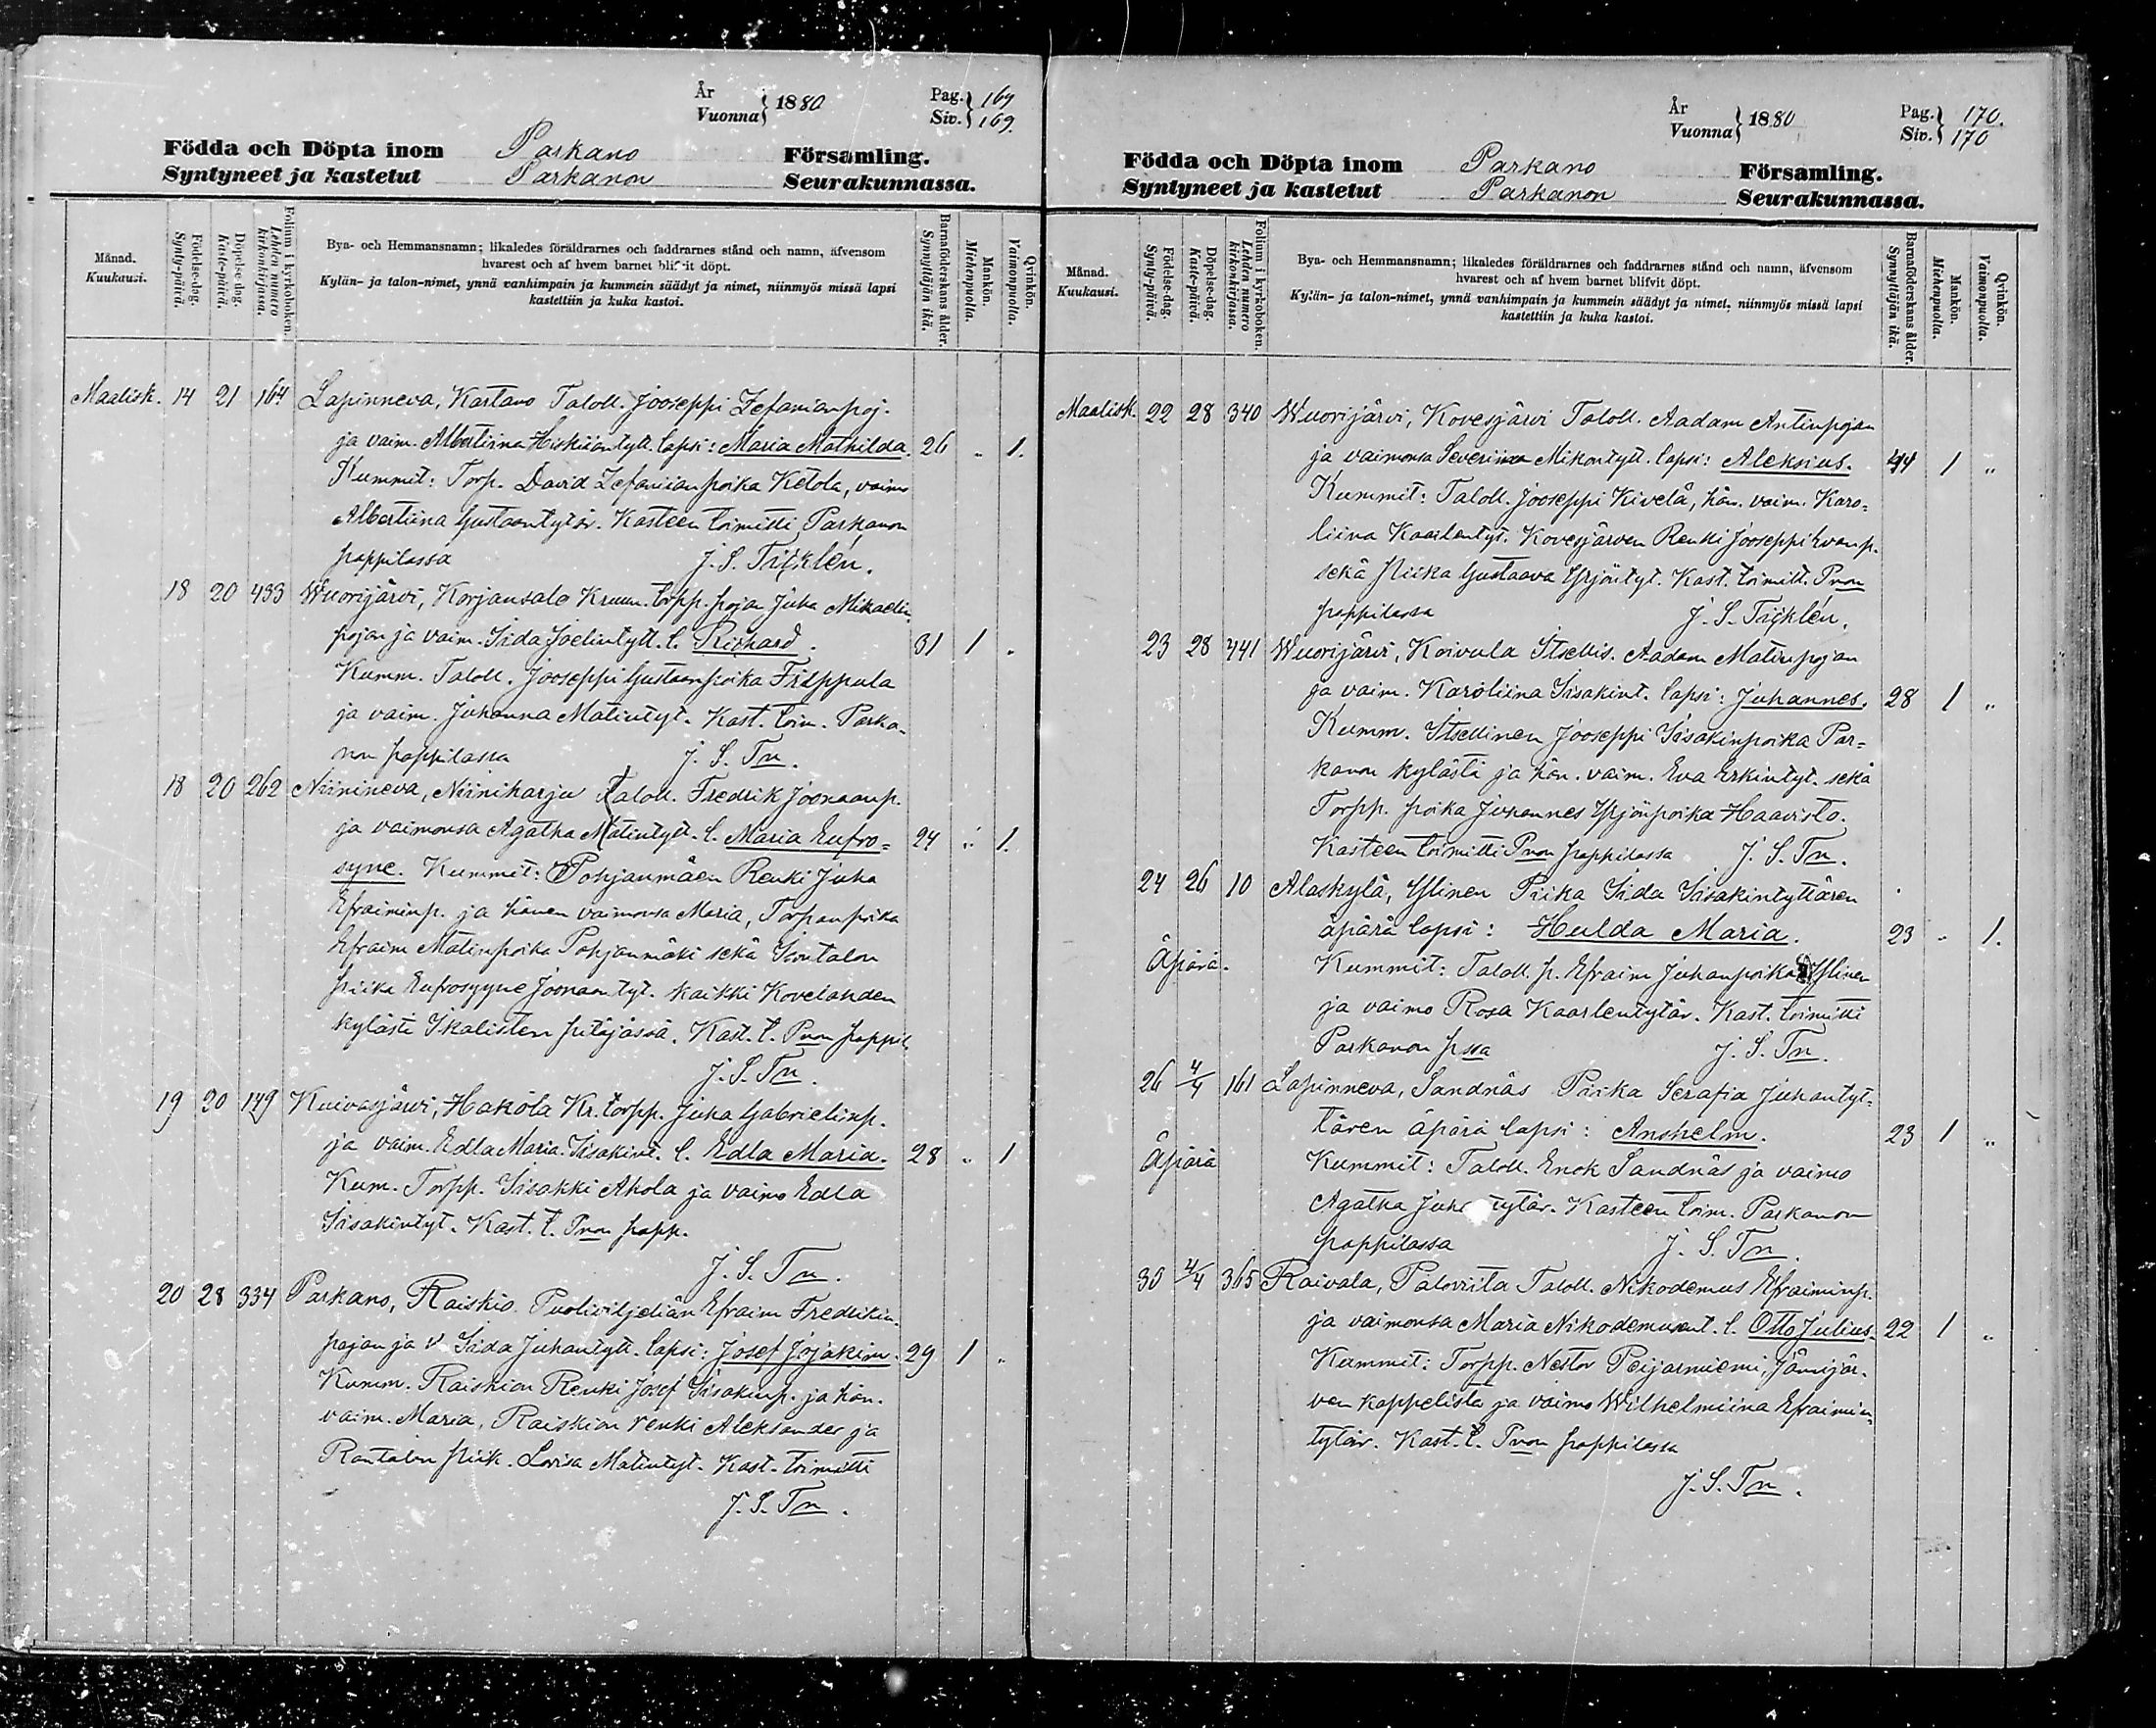 År
Vuonna } 1880
Pag. } 169
Siv. } 169.
Födda och Döpta inom Parkano Församling.
Syntyneet ja kastetut Parkanon Seurakunnassa.
Månad.
Kuukausi.
Födelse-dag.
Synty-päivä.
Döpelse-dag.
Kaste-päivä.
Folium i kyrkoboken.
Lehden numero kirkonkirjassa.
Bya- och Hemmansnamn; likaledes föräldrarnes och faddrarnes stånd och namn, äfvensom
hvarest och af hvem barnet blifvit döpt.
Kylän- ja talon-nimet, ynnä vanhimpain ja kummein säädyt ja nimet, niinmyös missä lapsi
kastettiin ja kuka kastoi.
Barnaföderskans ålder.
Synnyttäjän ikä.
Mankön.
Miehenpuolia.
Qvinkön.
Vaimonpuolia.
Maalisk. 14 21 164 Lapinneva, Kartano Taloll. Jooseppi Zefanianpoj.
ja vaim. Albertiina Hiskiiantytt. lapsi: Maria Mathilda. 26 „ 1.
Kummit: Torp. David Zefaniianpoika Ketola, vaimo
Albertiina Gustaantytär. Kasteen toimitti Parkanon
pappilassa J. S. Ticklén.
18 20 433 Wuorijärvi, Korjansalo Kruun. torpp. pojan Juha Mikaelin
pojan ja vaim. Iida Joelintytt. l. Richard. 31 1 „
Kumm. Taloll. Jooseppi Gustaanpoika Frippula
ja vaim. Juhanna Matintyt. Kast. toim. Parka-
non pappilassa J. S. Tn.
18 20 262 Niinineva, Niiniharju Taloll. Fredrik Joonaanp.
ja vaimonsa Agatha Matintytt. l. Maria Eufro= 24 „ 1.
syne. Kummit: Pohjanmäen Renki Juha
Efraiminp. ja hänen vaimonsa Maria, Torpanpoika
Efraim Matinpoika Pohjanmäki sekä talon
piika Eufrosyyne Joonaantyt. kaikki Kovelahden
kylästä Ikalisten pitäjässä. Kast. t. Pnon pappil.
J. S. Tn.
19 20 149 Kuivasjärvi, Hakola Kr. torpp. Juha Gabrielinp.
ja vaim. Edla Maria Iisakint. l. Edla Maria. 28 „ 1
Kum. Torpp. Iisakki Ahola ja vaimo Edla
Iisakintyt. Kast. t. Pnon papp.
J. S. Tn.
20 28 334 Parkano, Raiskio. Puoliviljeliän Efraim Fredrikin
pojan ja v. Iida Juhantytt. lapsi: Josef Jojakim. 29 1 „
Kumm. Raiskion Renki Josef Iisakinp. ja hän.
vaim. Maria, Raiskion renki Aleksander ja
Rantalan piik. Lovisa Matintyt. Kast. toimitti
J. S. Tn.
År
Vuonna } 1880
Pag. } 170.
Siv. } 170
Födda och Döpta inom Parkano Församling.
Syntyneet ja kastetut Parkanon Seurakunnassa.
Månad.
Kuukausi.
Födelse-dag.
Synty-päivä.
Döpelse-dag.
Kaste-päivä.
Folium i kyrkoboken.
Lehden numero kirkonkirjassa.
Bya- och Hemmansnamn; likaledes föräldrarnes och faddrarnes stånd och namn, äfvensom
hvarest och af hvem barnet blifvit döpt.
Kylän- ja talon-nimet, ynnä vanhimpain ja kummein säädyt ja nimet, niinmyös missä lapsi
kastettiin ja kuka kastoi.
Barnaföderskans ålder.
Synnyttäjän ikä.
Mankön.
Miehenpuolia.
Qvinkön.
Vaimonpuolia.
Maalisk. 22 28 340 Wuorijärvi, Kovesjärvi Taloll. Aadam Antinpojan
ja vaimonsa Severiina Mikontytt. lapsi: Aleksius. 44 1 „
Kummit: Taloll. Jooseppi Kivelä, hän. vaim. Karo=
liina Kaarlentyt. Kovesjärven Renki Jooseppi Iivanp.
sekä piika Gustaava Yrjöntyt. Kast. toimitt. Pnon
pappilassa J. S. Ticklén.
23 28 441 Wuorijärvi, Koivula Itsellis. Aadam Matinpojan
ja vaim. Karoliina Iisakint. lapsi: Juhannes. 28 1 „
Kumm. Itsellinen Jooseppi Iisakinpoika Par=
kanon kylästä ja hän. vaim. Eva Erkintyt. sekä
Torpp. poika Juhannes Yrjönpoika Haavisto.
Kasteen toimitti Pnon pappilassa J. S. Tn.
24 26 10 Alaskylä, Ylinen Piika Iida Iisakintyttären
äpärä lapsi: Hulda Maria. 23 „ 1.
Äpärä. Kummit: Taloll. p. Efraim Juhanpoika Ylinen
ja vaimo Rosa Kaarlentytär. Kast. toimitti
Parkanon pssa J. S. Tn.
26 4/4 161 Lapinneva, Sandnäs Piika Serafia Juhantyt=
tären äpärä lapsi: Anshelm. 23 1 „
Äpärä Kummit: Taloll. Enok Sandnäs ja vaimo
Agatha Juh tytär. Kasteen toim. Parkanon
pappilassa J. S. Tn.
30 4/4 365 Raivala, Paloviita Taloll. Nikodemus Efraiminp.
ja vaimonsa Maria Nikodemusent. l. Otto Julius. 22 1 „
Kummit: Torpp. Nestor Peijarniemi, Jämijär-
ven kappelista ja vaimo Wilhelmiina Efraimin
tytär. Kast. t. Pnon pappilassa
J. S. Tn.